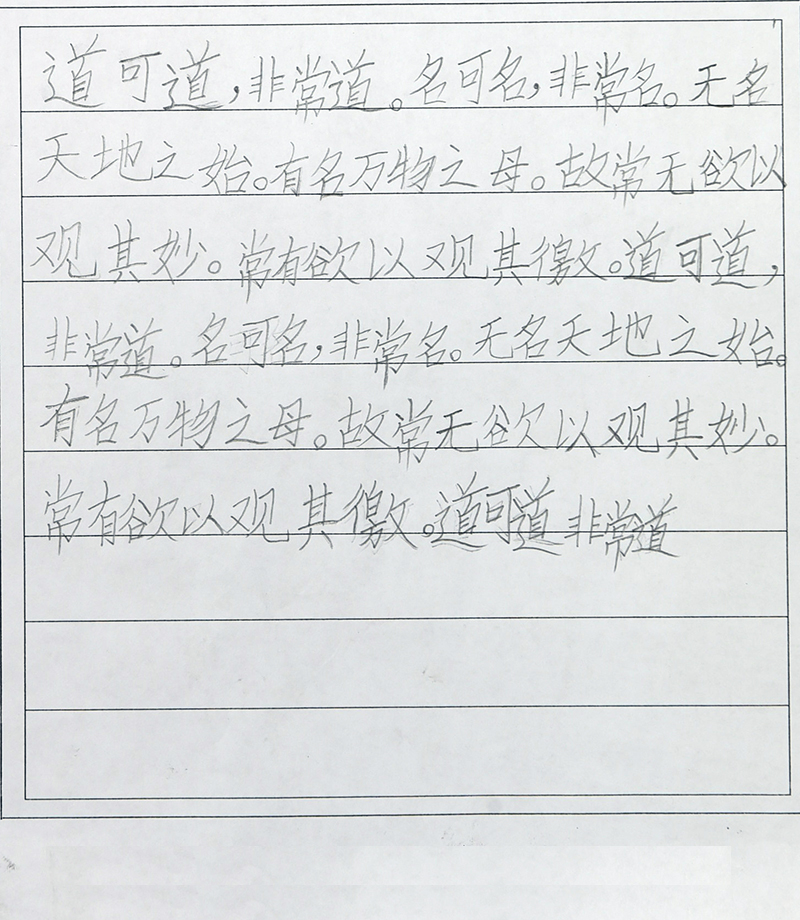 道可道，非常道。名可名，非常名。无名
天地之始。有名万物之母。故常无欲以
观其妙。常有欲以观其徼。道可道，
非常道。名可名，非常名。无名天地之始。
有名万物之母。故常无欲以观其妙。
常有欲以观其徼。道可道非常道